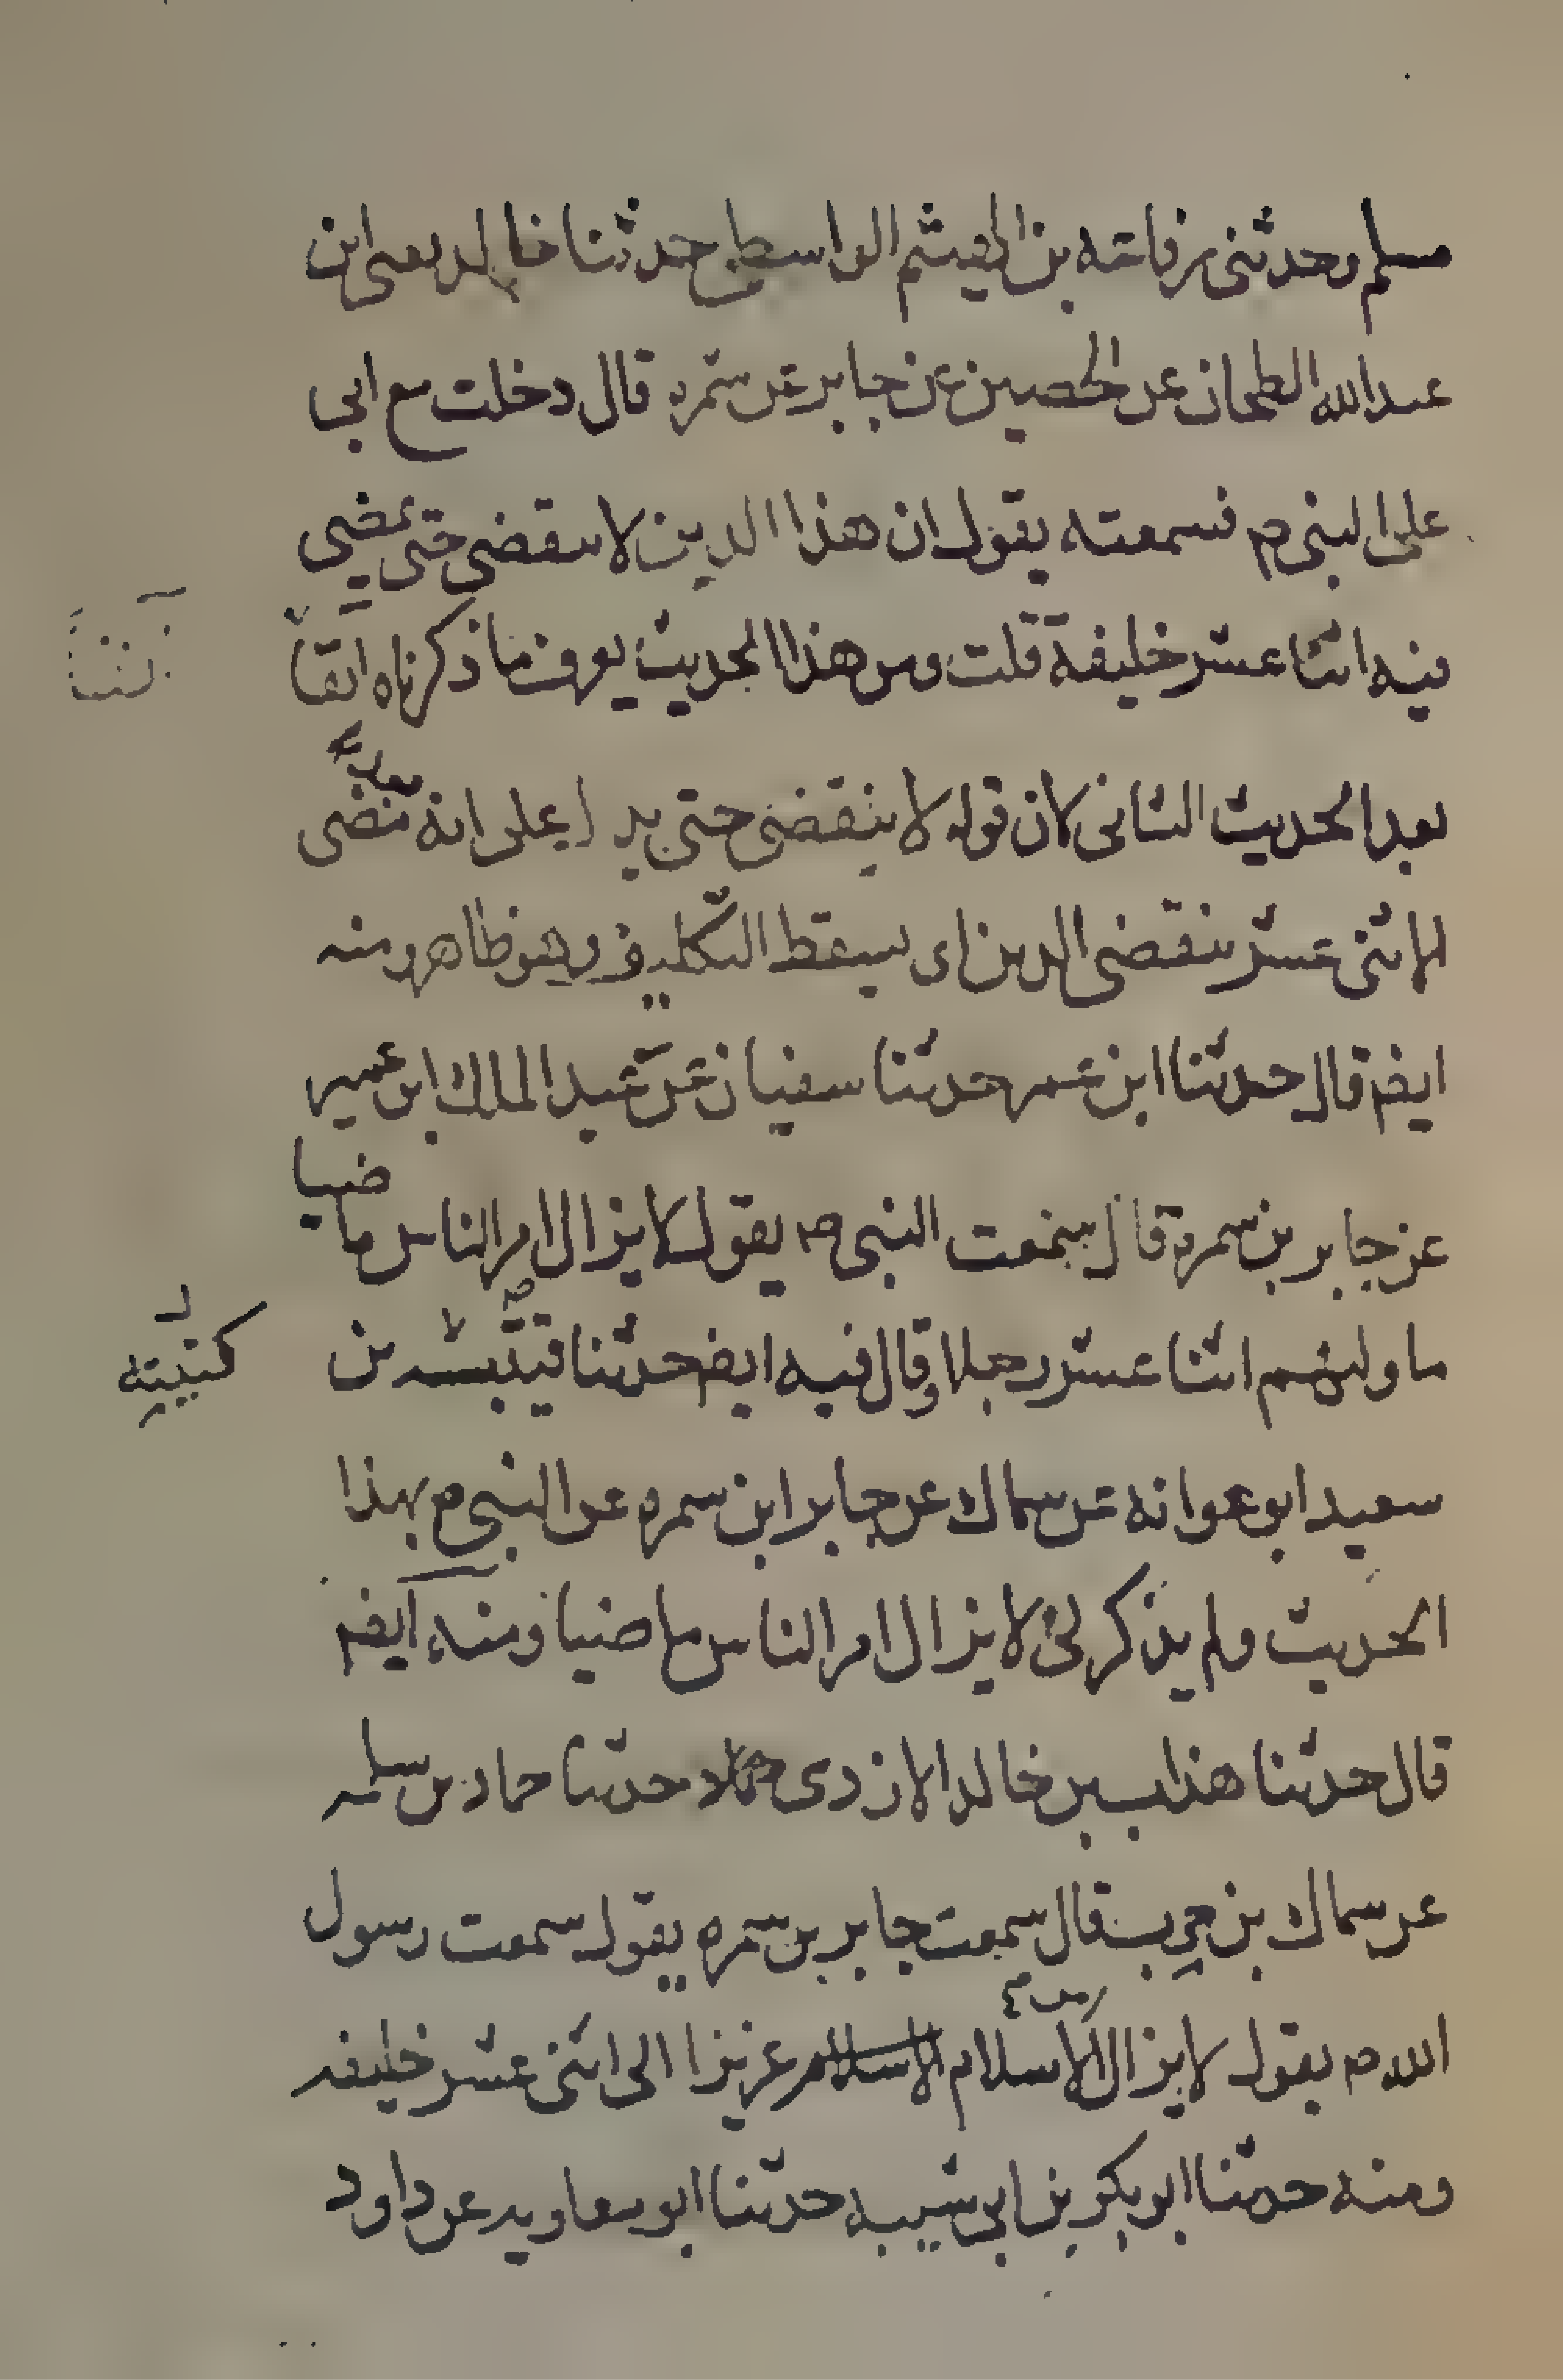 مسلم وحدثنى رفاعه بن الهيثم الواسطى حدثنا خالد يعنى ابن
عبدالله الطحان عن الحصين عن جابر عن سمره قال دخلت مع ابى
على النبى م فسمعته يقول ان هذا الدين لا ينقضى حتى يمضى
فيه اثنا عشر خليفة قلت ومن هذا الحديث يعرف ما ذكرناه انفا
بعد الحديث الثانى لان قوله لا ينقضى حتى يد ل على انه بمضى
الاثنى عشر ينقضى الدين اى يسقط التكليف وهو ظاهر ومنه
ايضم قال حدثنا ابن عمر حدثنا سفيان عن عبد الملك ابن عمير
عن جابر بن سمرة قال سمعت النبى ص يقول لا يزال امر الناس ماضيا
ما وليهم اثنا عشر رجلا وقال فيه ايضم حدثنا قتيبه بن
سعيد ابو عوانه عن سماك عن جابر ابن سمره عن النبى م بهذا
الحديث ولم يذكر لى لا يزال امر الناس ماضيا ومنه ايضم
قال حدثنا هذاب بن خالد الازدى حدثنا حماد بن سلمه
عن سماك بن حرب قال سمعت جابر بن سمره يقول سمعت رسول
الله م يقول لا يزال الاسلام الاسلام عزيزا الى اثنى عشر خليفه
ومنه حدثنا ابو بكر بن ابى شيبه حدثنا ابو معاويه عن داود